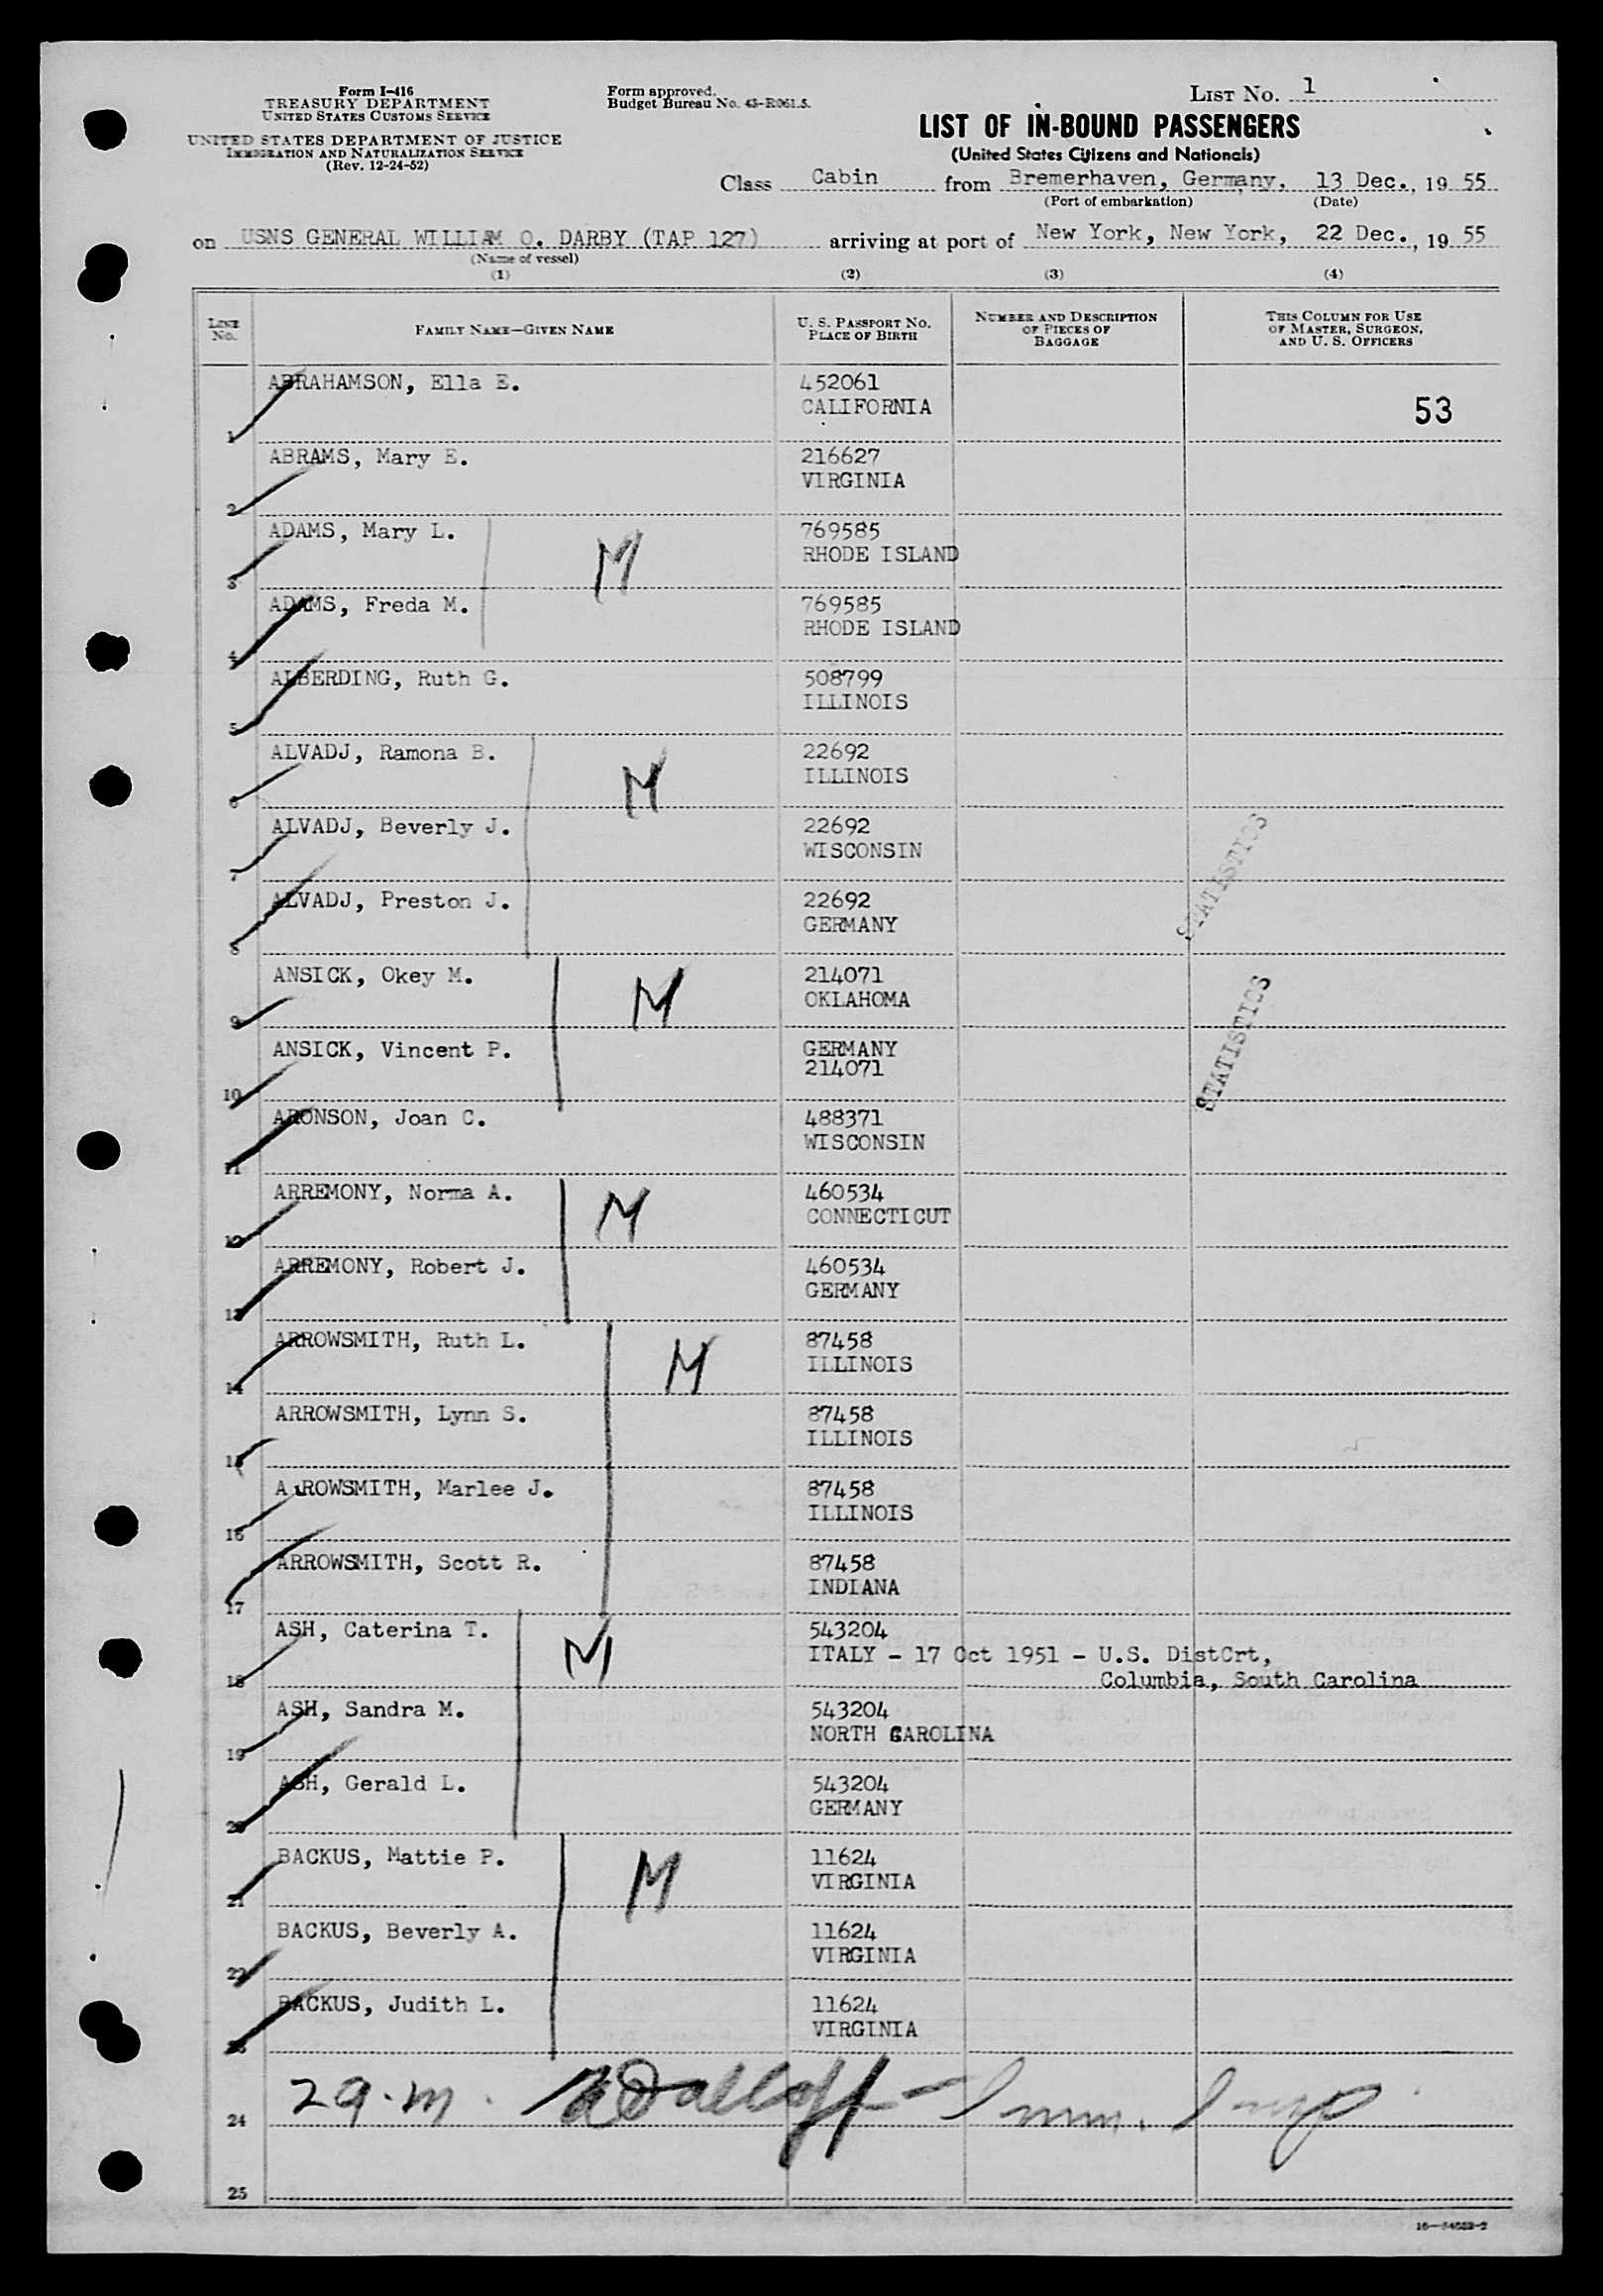 Form I-416
TREASURY DEPARTMENT
UNITED STATES CUSTOMS SERVICE
UNITED STATES DEPARTMENT OF JUSTICE
IMMIGRATION AND NATURALIZATION SERVICE
(Rev. 12-24-52)
Form approved.
Budget Bureau No. 43-R061.5.
LIST No. 1
LIST OF IN-BOUND PASSENGERS
(United States Citizens and Nationals)
Class Cabin from Bremerhaven, Germany, 13 Dec., 19 55
(Port of embarkation) (Date)
on USNS GENERAL WILLIAM O. DARBY (TAP 127) arriving at port of New York, New York, 22 Dec., 19 55
(Name of vessel)
(1) (2) (3) (4)
LINE No. FAMILY NAME—GIVEN NAME U. S. PASSPORT NO. PLACE OF BIRTH NUMBER AND DESCRIPTION OF PIECES OF BAGGAGE THIS COLUMN FOR USE OF MASTER, SURGEON, AND U. S. OFFICERS
1 ABRAHAMSON, Ella E. 452061
CALIFORNIA 53
2 ABRAMS, Mary E. 216627
VIRGINIA
3 ADAMS, Mary L. M 769585
RHODE ISLAND
4 ADAMS, Freda M. 769585
RHODE ISLAND
5 ALBERDING, Ruth G. 508799
ILLINOIS
6 ALVADJ, Ramona B. M 22692
ILLINOIS
7 ALVADJ, Beverly J. 22692
WISCONSIN
STATISTICS
8 ALVADJ, Preston J. 22692
GERMANY
9 ANSICK, Okey M. M 214071
OKLAHOMA
STATISTICS
10 ANSICK, Vincent P. GERMANY
214071
11 ARONSON, Joan C. 488371
WISCONSIN
12 ARREMONY, Norma A. M 460534
CONNECTICUT
13 ARREMONY, Robert J. 460534
GERMANY
14 ARROWSMITH, Ruth L. M 87458
ILLINOIS
15 ARROWSMITH, Lynn S. 87458
ILLINOIS
16 ARROWSMITH, Marlee J. 87458
ILLINOIS
17 ARROWSMITH, Scott R. 87458
INDIANA
18 ASH, Caterina T. M 543204
ITALY - 17 Oct 1951 - U.S. DistCrt,
Columbia, South Carolina
19 ASH, Sandra M. 543204
NORTH CAROLINA
20 ASH, Gerald L. 543204
GERMANY
21 BACKUS, Mattie P. M 11624
VIRGINIA
22 BACKUS, Beverly A. 11624
VIRGINIA
23 BACKUS, Judith L. 11624
VIRGINIA
24
25